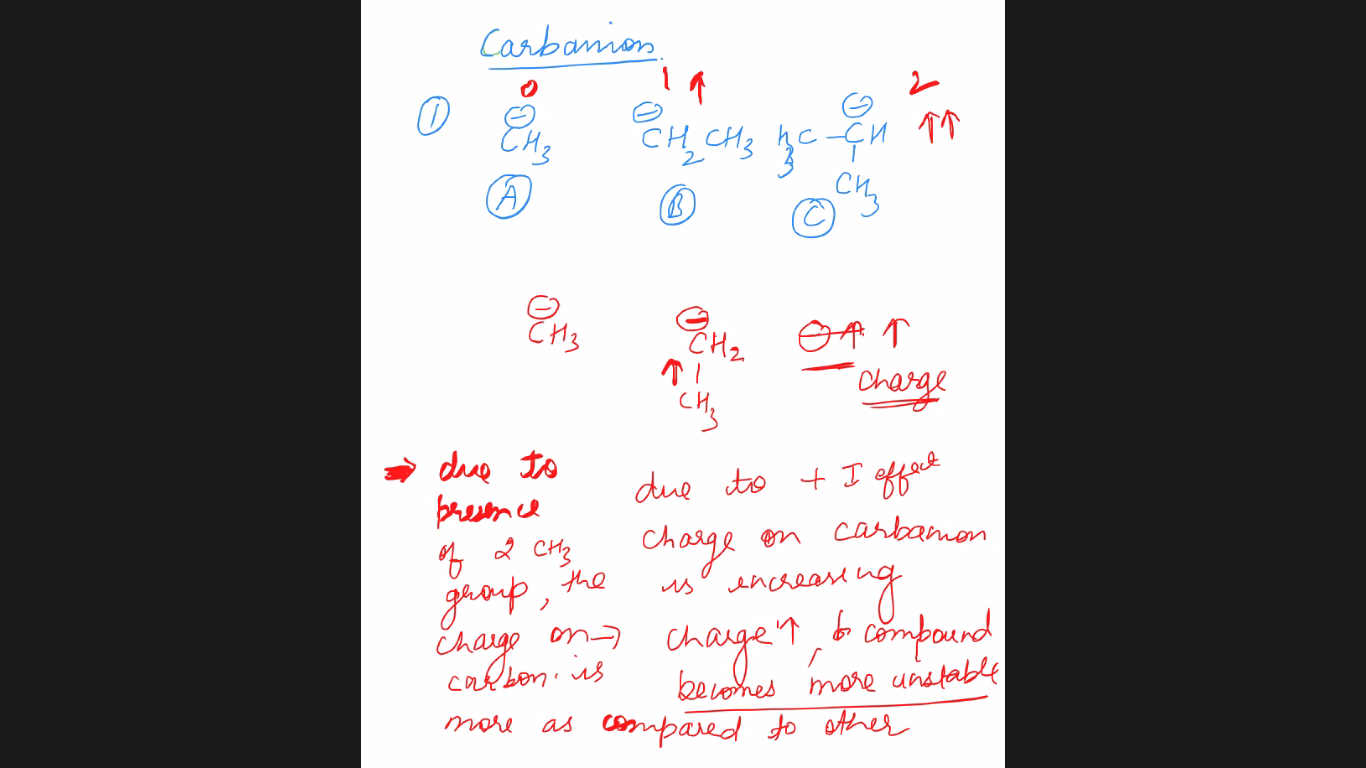 Carbanion
0 1 ↑ 2
① ⊖ ⊖ ⊖ ↑↑
CH3 CH2CH3 H3C–CH
CH3
Ⓐ Ⓑ Ⓒ
⊖ ⊖
CH3 CH2 ⊖↑ ↑
↑ charge
CH3
→ due to
presence
of 2 CH3
group, the
charge on →
carbon is
more as compared to other
due to + I effect
charge on carbanion
is increasing
charge ↑, & compound
becomes more unstable